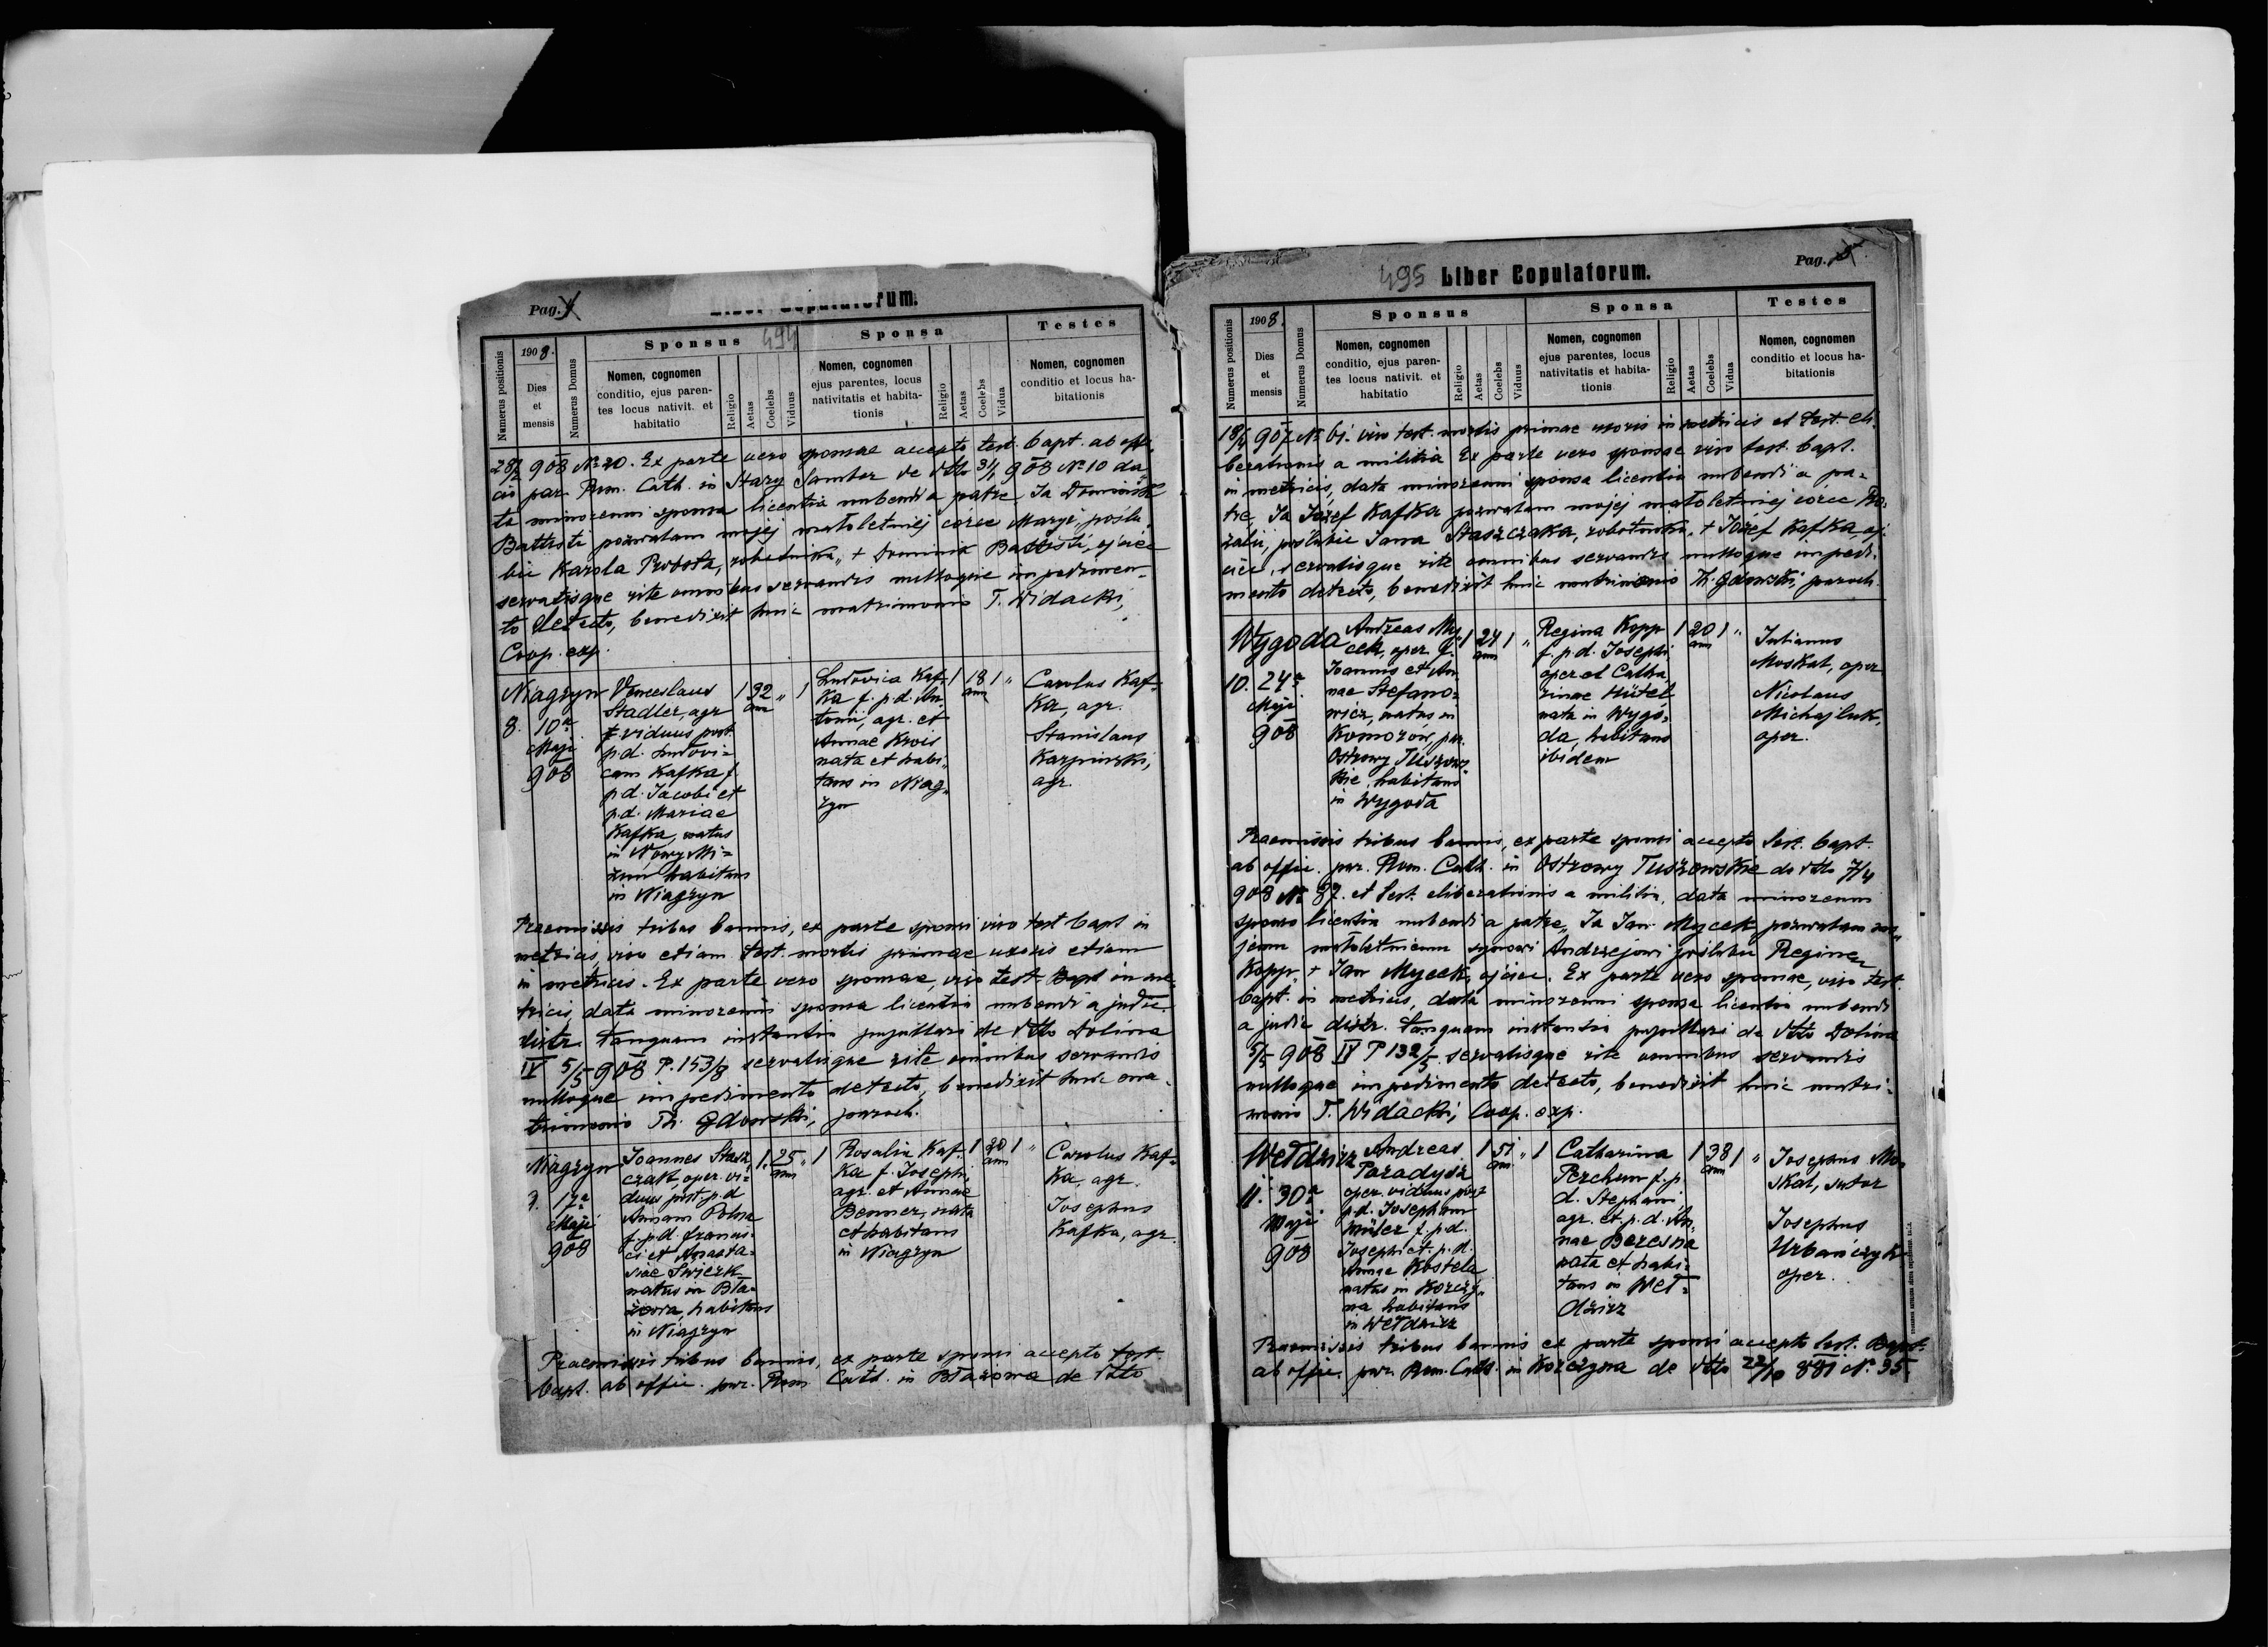 Pag.
Liber Copulatorum.
494
Numerus positionis
1908.
Dies
et
mensis
Numerus Domus
Sponsus
Nomen, cognomen
conditio, ejus paren-
tes locus nativit. et
habitatio
Religio
Aetas
Coelebs
Viduus
Sponsa
Nomen, cognomen
ejus parentes, locus
nativitatis et habita-
tionis
Religio
Aetas
Coelebs
Vidua
Testes
Nomen, cognomen
conditio et locus ha-
bitationis
28/2 908 № 20. Ex parte vero sponsae accepto test. bapt. ab offi-
cio par. Rom. Cath. in Stary Sambor de dtto 31/1 908 № 10 da
ta minorenni sponsa licentia nubendi a patre, Ja Dominik
Battisti pozwalam mojej małoletniej córce Maryi, poślu
bić Karola Probsta, robotnika, + Dominik Battisti, ojciec
servatisque rite omnibus servandis nulloque impedimen-
to detecto, benedixit huic matrimonio T. Widacki,
Coop. exp.
Niagryn
8.
10a
Maji
908
Venceslaus
Stadler, agr
viduus post
p.d. Ludovi-
cam Kafka f.
p.d. Jacobi et
p.d. Mariae
Kafka, natus
in Nowy Mi-
zuń habitans
in Niagryn
1 32 ann " 1
Ludovica Kaf-
ka f. p.d. An-
tonii, agr. et
Annae Krois
nata et habi-
tans in Niag-
ryn
1 18 ann 1 "
Carolus Kaf-
ka, agr.
Stanislaus
Karpinski,
agr.
Praemissis tribus bannis, ex parte sponsi viso test bapt in
metricis, viso etiam test. mortis primae uxoris etiam
in metricis. Ex parte vero sponsae, viso test. Bapt in me-
tricis, data minorenni sponsa licentia nubendi a judic.
distr. tanquam instantia pupillari de dtto Dolina
IV 5/5 908 P. 153/8 servatisque rite omnibus servandis
nulloque impedimento detecto, benedixit huic ma-
trimonio Th. Gdowski, paroch.
Niagryn
9.
17a
Maji
908
Joannes Stasz
czak, oper. vi-
duus post p.d
Annam Polna
f. p.d. Francis-
ci et Anasta-
siae Świerk
natus in Bła-
żowa, habitans
in Niagryn
1 25 ann " 1
Rosalia Kaf-
ka f. Josephi
agr. et Annae
Benner, nata
et habitans
in Niagryn
1 20 ann 1 "
Carolus Kaf-
ka, agr.
Josephus
Kafka, agr.
Praemissis tribus bannis, ex parte sponsi accepto test.
bapt. ab offic. par. Rom Cath. in Błażowa de dtto
495
Liber Copulatorum.
Pag.
Numerus positionis
1908.
Dies
et
mensis
Numerus Domus
Sponsus
Nomen, cognomen
conditio, ejus paren-
tes locus nativit. et
habitatio
Religio
Aetas
Coelebs
Viduus
Sponsa
Nomen, cognomen
ejus parentes, locus
nativitatis et habita-
tionis
Religio
Aetas
Coelebs
Vidua
Testes
Nomen, cognomen
conditio et locus ha-
bitationis
18/4 907 № 61. viso test. mortis primae uxoris in metricis et test. eli-
berationis a militia Ex parte vero sponsae viso test. bapt.
in metricis, data minorenni sponsa licentia nubendi a pa-
tre, Ja Józef Kafka pozwalam mojej małoletniej córce Ro-
zalii, poślubić Jana Staszczaka, robotnika, + Józef Kafka, oj-
ciec, servatisque rite omnibus servandis nulloque impedi-
mento detecto, benedixit huic matrimonio Th. Gdowski, paroch.
Wygoda
10.
24a
Maji
908
Andreas My-
cek, oper. f.
Joannis et An-
nae Stefano-
wicz, natus in
Komorów, par.
Ostrowy Tuszow-
skie, habitans
in Wygoda
1 24 ann 1 "
Regina Kopp
f. p.d. Josephi
oper et Catha-
rinae Hütel
nata in Wygo-
da, habitans
ibidem
1 20 ann 1 "
Julianus
Moskal, oper
Nicolaus
Michajluk,
oper.
Praemissis tribus bannis, ex parte sponsi accepto test. bapt.
ab offic. par. Rom. Cath. in Ostrowy Tuszowskie de dtto 7/4
908 № 87. et test. eliberationis a militia, data minorenni
sponso licentia nubendi a patre, Ja Jan Mycek pozwalam mo-
jemu małoletniemu synowi Andrzejowi poślubić Reginę
Kopp, + Jan Mycek, ojciec. Ex parte vero sponsae, viso test.
bapt. in metricis, data minorenni sponsa licentia nubendi
a judic distr. tanquam instantia pupillari de dtto Dolina
5/5 908 IV P 132/5. servatisque rite omnibus servandis
nulloque impedimento detecto, benedixit huic matri-
monio T. Widacki, Coop. exp.
Wełdzirz
11.
30a
Maji
908
Andreas
Paradysz
oper. viduus post
p.d. Josepham
Müller f. p.d.
Josephi et p.d.
Annae Kostela
natus in Korczy-
na habitans
in Wełdzirz
1 51 an " 1
Catharina
Perchun f. p.
d. Stephani
agr. et p.d. An-
nae Beresna
nata et habi-
tans in Weł-
dzirz
1 38 ann 1 "
Josephus Mo-
skal, sutor
Josephus
Urbańczyk
oper.
Praemissis tribus bannis ex parte sponsi accepto test. Bapt.
ab offic. par. Rom. Cath. in Korczyna de dtto 22/10 881 №. 35.